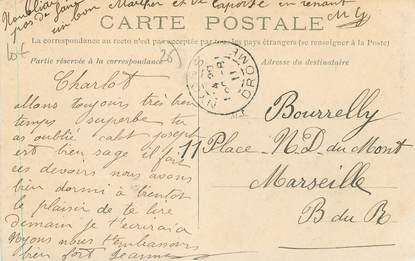 N'oubliez pas de faire
un bon Marcher et de Caporte en venant
M G
CARTE POSTALE
La correspondance au recto n'est pas acceptée par tous les pays étrangers (se renseigner à la Poste)
Partie réservée à la correspondance
Adresse du destinataire
NYONS
DROME
Charlot
allons toujours très bien
temps superbe tu
as oublié cabt joseph
est bien sage il fait
ces devoirs nous avons
bien dormi a bientot
le plaisir de te lire
demain je t'ecrirai a
Nyons nous t'embrassons
bien fort Jeanne
Bourrelly
11 Place N.D. du Mont
Marseille
B du R